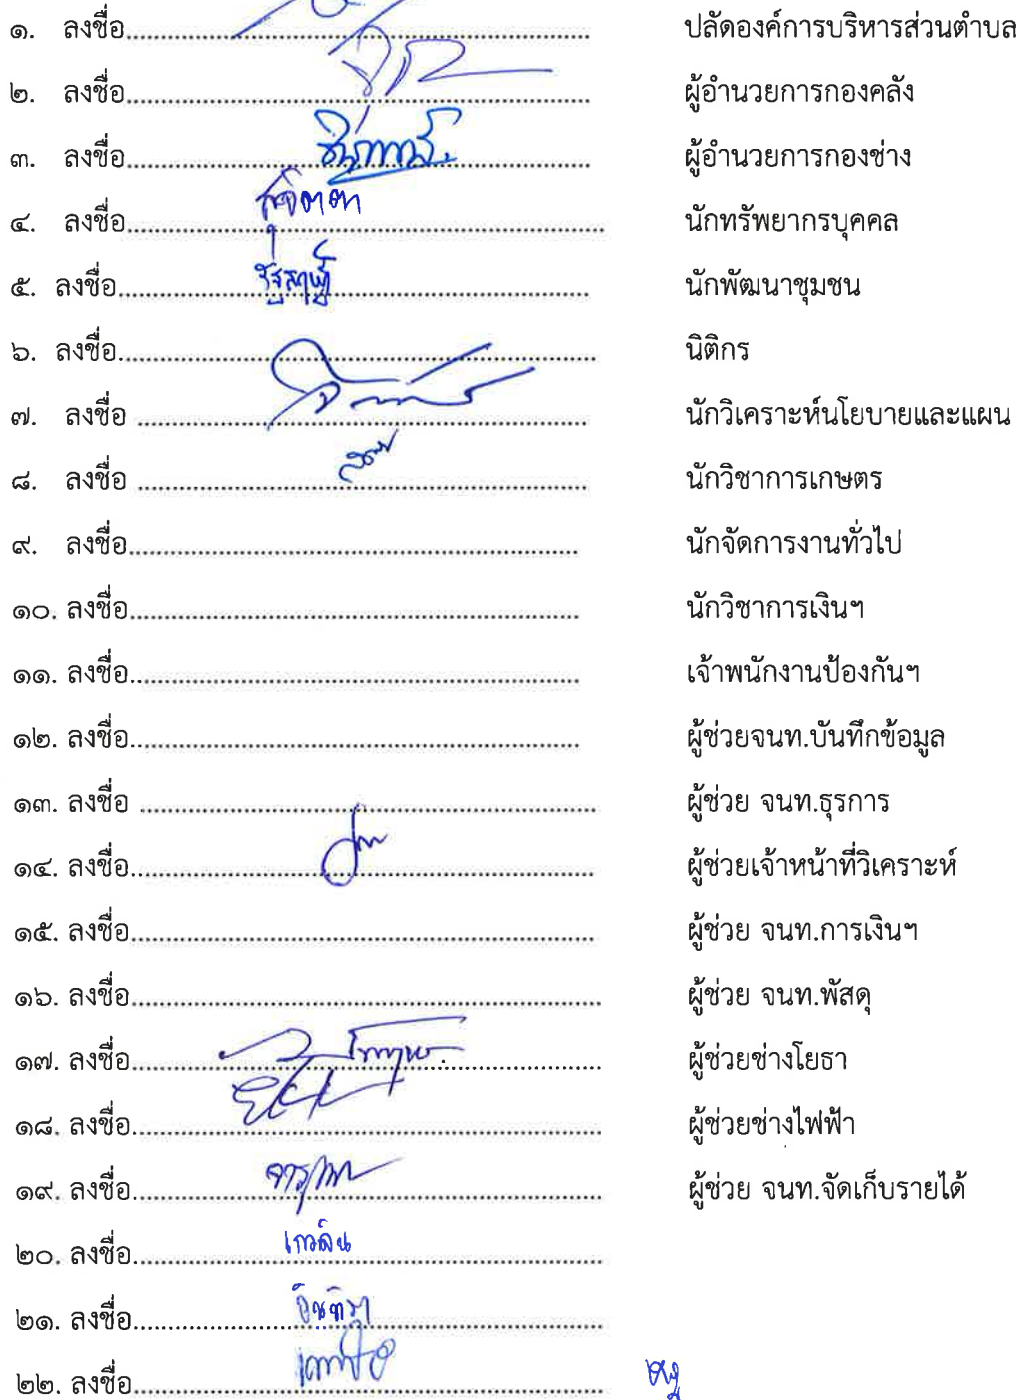 ๑. ลงชื่อ........................................ ปลัดองค์การบริหารส่วนตำบล
๒. ลงชื่อ........................................ ผู้อำนวยการกองคลัง
๓. ลงชื่อ........................................ ผู้อำนวยการกองช่าง
๔. ลงชื่อ........................................ นักทรัพยากรบุคคล
๕. ลงชื่อ........................................ นักพัฒนาชุมชน
๖. ลงชื่อ........................................ นิติกร
๗. ลงชื่อ ........................................ นักวิเคราะห์นโยบายและแผน
๘. ลงชื่อ ........................................ นักวิชาการเกษตร
๙. ลงชื่อ........................................ นักจัดการงานทั่วไป
๑๐. ลงชื่อ........................................ นักวิชาการเงินฯ
๑๑. ลงชื่อ........................................ เจ้าพนักงานป้องกันฯ
๑๒. ลงชื่อ........................................ ผู้ช่วยจนท.บันทึกข้อมูล
๑๓. ลงชื่อ ........................................ ผู้ช่วย จนท.ธุรการ
๑๔. ลงชื่อ........................................ ผู้ช่วยเจ้าหน้าที่วิเคราะห์
๑๕. ลงชื่อ........................................ ผู้ช่วย จนท.การเงินฯ
๑๖. ลงชื่อ........................................ ผู้ช่วย จนท.พัสดุ
๑๗. ลงชื่อ........................................ ผู้ช่วยช่างโยธา
๑๘. ลงชื่อ........................................ ผู้ช่วยช่างไฟฟ้า
๑๙. ลงชื่อ........................................ ผู้ช่วย จนท.จัดเก็บรายได้
๒๐. ลงชื่อ........................................
๒๑. ลงชื่อ........................................
๒๒. ลงชื่อ........................................